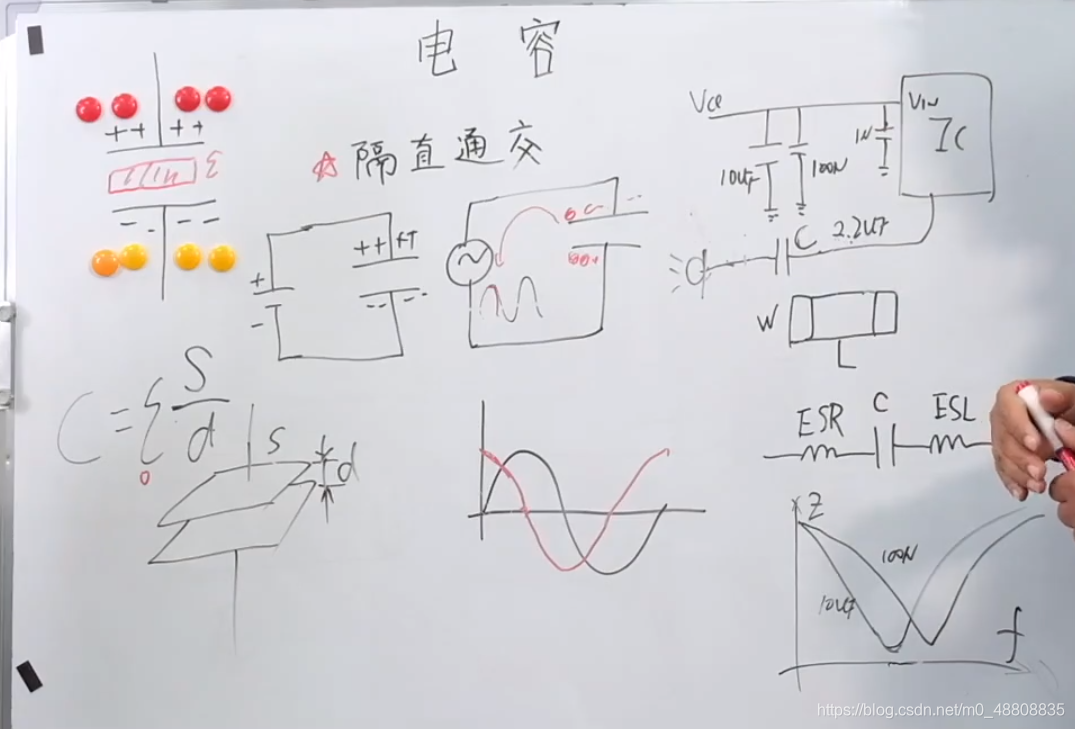 电 容
☆ 隔直通交
++ ++
ε
-- --
++ ++
+
-
-- --
Vcc
10uF
100N
1N
VIN
IC
C 2.2uF
W
L
C = ε S/d
S
d
ESR C ESL
Z
100N
10uF
f
https://blog.csdn.net/m0_48808835